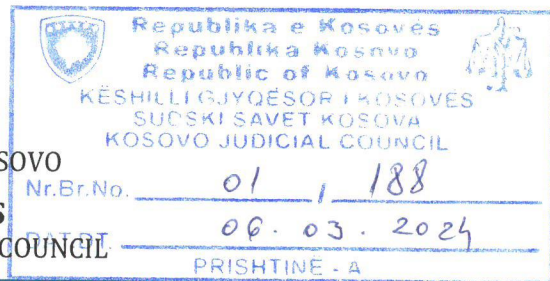 Republika e Kosovës
Republika Kosovo
Republic of Kosovo
KËSHILLI GJYQËSOR I KOSOVËS
SUDSKI SAVET KOSOVA
KOSOVO JUDICIAL COUNCIL
SOVO
Nr.Br.No. 01 / 188
S
DAT.DT. 06.03.2024
COUNCIL
PRISHTINË - A